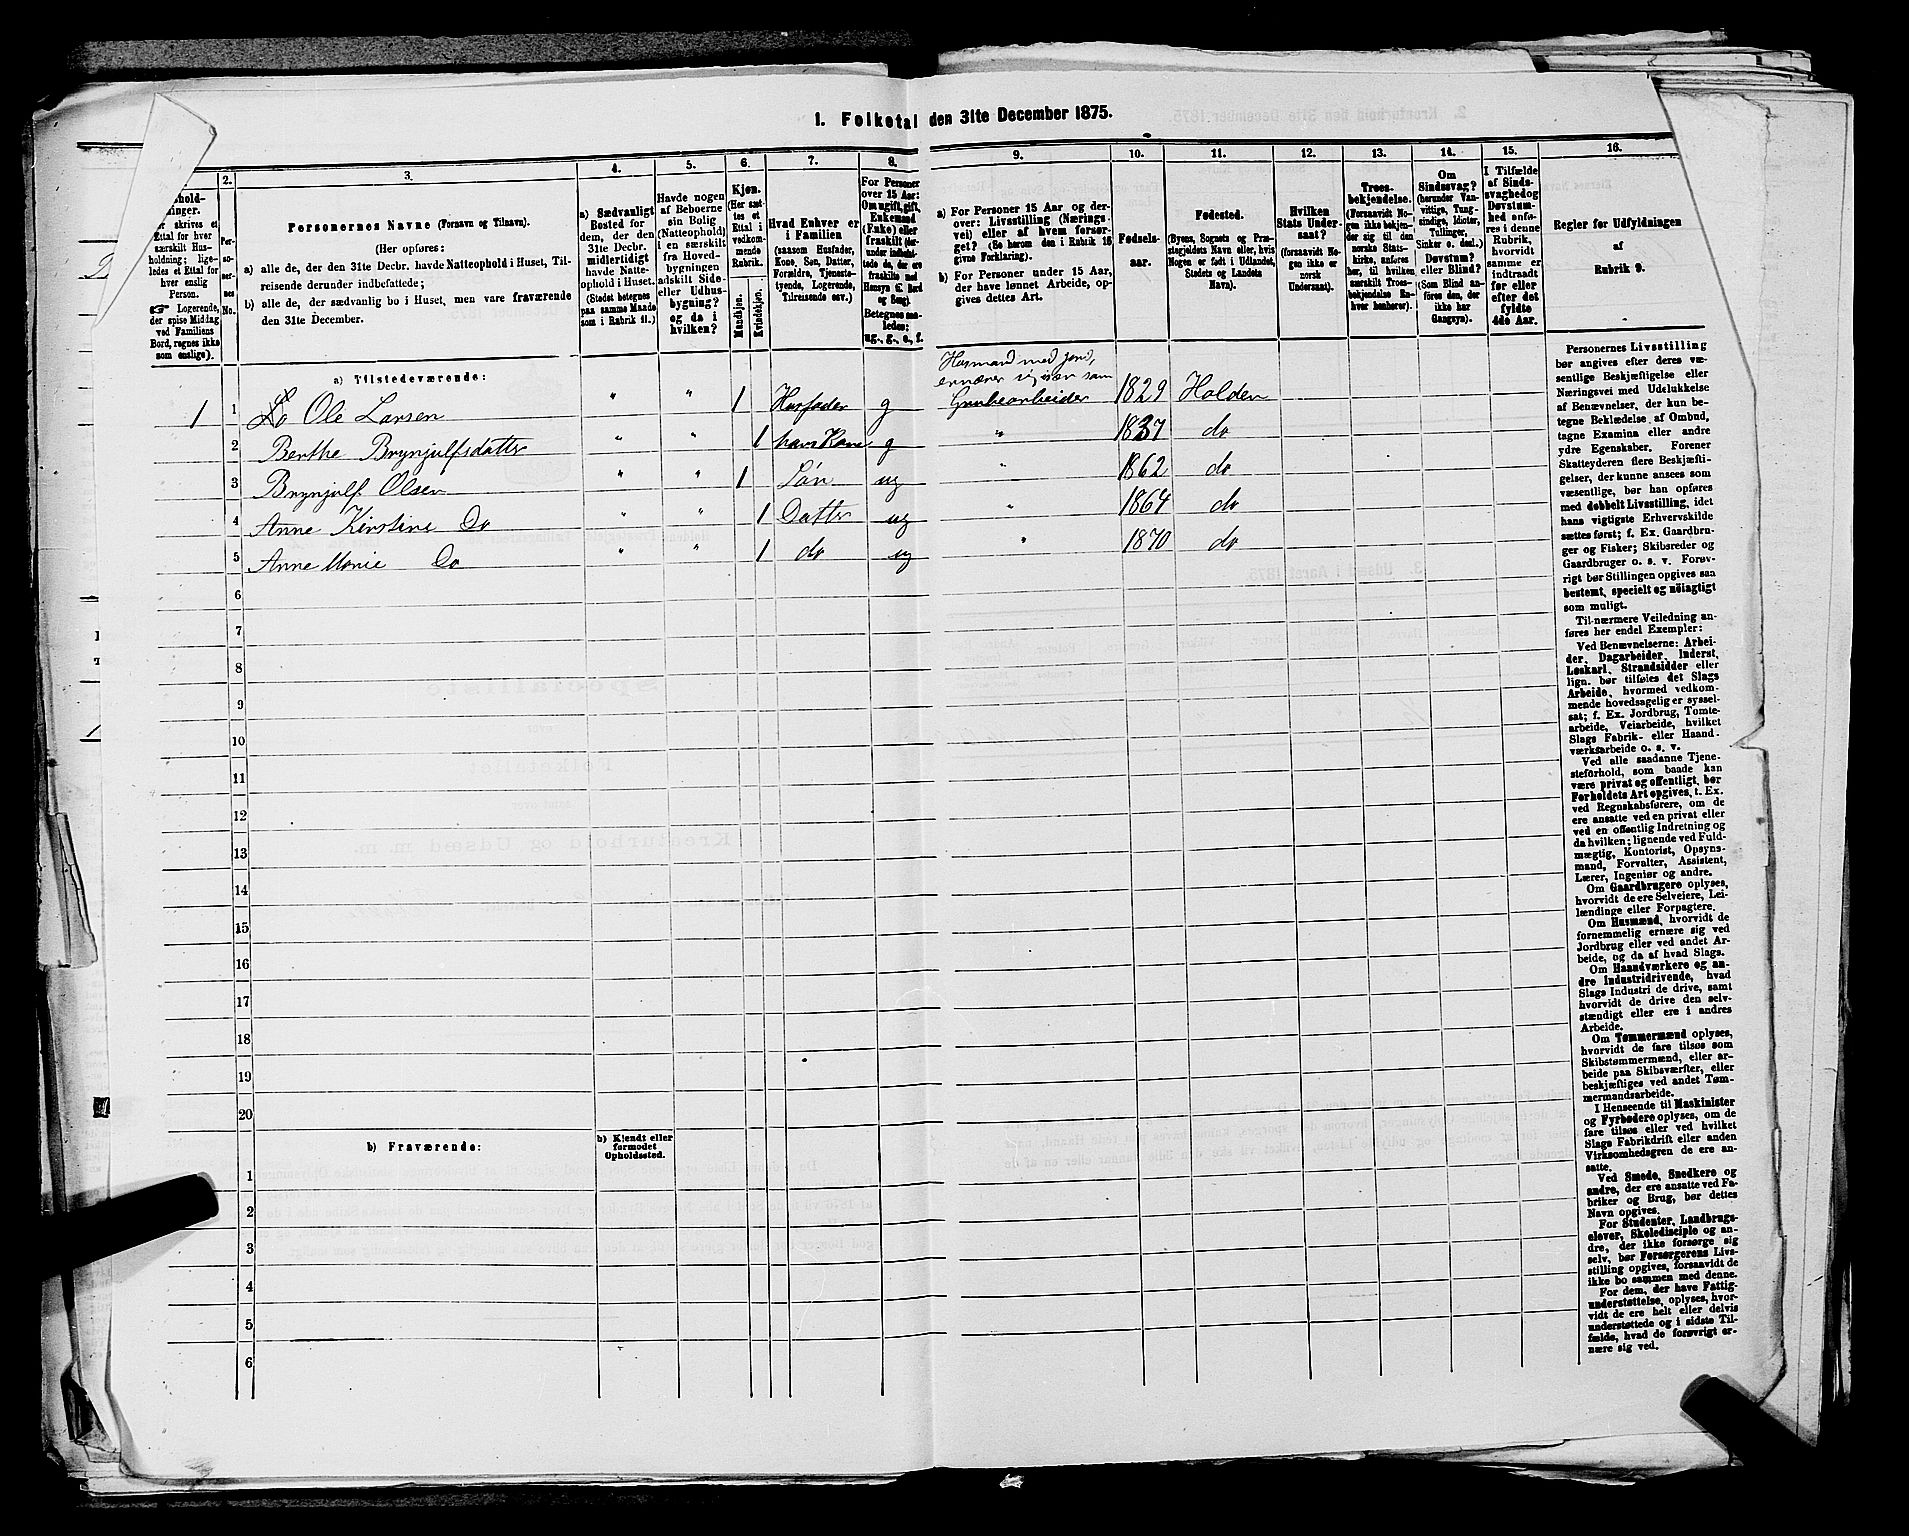 1. Folketal den 31te December 1875.
2. 3. 4. 5. 6. 7. 8. 9. 10. 11. 12. 13. 14. 15. 16.
Ettal for hver
særskilt Hus-
holdning; lige-
ledes et Ettal for
hver enslig
Person.
☞ Logerende,
der spise Middag
ved Familiens
Bord, regnes ikke
som enslige).
Per-
so-
ner-
nes
No.
Personernes Navne (Fornavn og Tilnavn).
(Her opføres:
a) alle de, der den 31te Decbr. havde Natteophold i Huset, Til-
reisende derunder indbefattede;
b) alle de, der sædvanlig bo i Huset, men vare fraværende
den 31te December.
a) Sædvanligt
Bosted for
dem, der den
31te Decbr.
midlertidigt
havde Natte-
ophold i Huset.
(Stedet betegnes
paa samme Maade
som i Rubrik 11.)
Havde nogen
af Beboerne
sin Bolig
(Natteophold)
i en særskilt
fra Hoved-
bygningen
adskilt Side-
eller Udhus-
bygning?
og da i
hvilken?
Kjøn.
(Her sæt-
tes et
Ettal i
vedkom-
mende
Rubrik.
Mandkjøn.
Kvindekjøn.
Hvad Enhver er
i Familien
(saasom Husfader,
Kone, Søn, Datter,
Forældre, Tjeneste-
tyende, Logerende,
Tilreisende osv.)
For Personer
over 15 Aar:
Om ugift, gift,
Enkemand
(Enke) eller
fraskilt
Betegnes saa-
ledes:
ug., g., e., f.
a) For Personer 15 Aar og der-
over: Livsstilling (Nærings-
vei) eller af hvem forsør-
get? (Se herom den i Rubrik 16
givne Forklaring).
b) For Personer under 15 Aar,
der have lønnet Arbeide, op-
gives dettes Art.
Fødsels-
aar.
Fødested.
(Byens, Sognets og Præ-
stegjeldets Navn eller, hvis
Nogen er født i Udlandet,
Stedets og Landets
Navn).
Hvilken
Stats Under-
saat?
(forsaavidt No-
gen ikke er
norsk
Undersaat).
Troes-
bekjendelse.
(Forsaavidt No-
gen ikke bekjen-
der sig til den
norske Stats-
kirke, anføres
her, til hvilken
særskilt Troes-
bekjendelse En-
hver henhører).
Om
Sindssvag?
(herunder Van-
vittige, Tung-
sindige, Idioter,
Tullinger,
Sinker o. desl.)
Døvstum?
eller Blind?
(Som Blind an-
føres den, der
ikke har
Gangsyn).
I Tilfælde
af Sinds-
svaghed og
Døvstum-
hed anfø-
res i denne
Rubrik,
hvorvidt
samme er
indtraadt
før eller
efter det
fyldte
4de Aar.
Regler for Udfyldningen
af
Rubrik 9.
a) Tilstedeværende:
Husmand med Jord,
ernærer sig især som
1 1 Ole Larsen " " 1 Husfader g Grubearbeider 1829 Holden
2 Berthe Brynjulfsdatter " " 1 hans Kone g " 1837 do
3 Brynjulf Olsen " " 1 Søn ug " 1862 do
4 Anne Kirstine Do " " 1 Datter ug " 1864 do
5 Anne Marie Do " " 1 do ug " 1870 do
6
7
8
9
10
11
12
13
14
15
16
17
18
19
20
b) Fraværende:
b) Kjendt eller
formodet
Opholdssted.
1
2
3
4
5
6
Personernes Livsstilling
bør angives efter deres væ-
sentlige Beskjæftigelse eller
Næringsvei med Udelukkelse
af Benævnelser, der kun be-
tegne Beklædelse af Ombud,
tagne Examina eller andre
ydre Egenskaber. Forener
Skatteyderen flere Beskjæfti-
gelser, der kunne ansees som
væsentlige, bør han opføres
med dobbelt Livsstilling, idet
hans vigtigste Erhvervskilde
sættes først; f. Ex. Gaardbru-
ger og Fisker; Skibsreder og
Gaardbruger o. s. v. Forøv-
rigt bør Stillingen opgives saa
bestemt, specielt og nöiagtigt
som muligt.
Til nærmere Veiledning an-
føres her endel Exempler:
Ved Benævnelserne: Arbei-
der, Dagarbeider, Inderst,
Løskarl, Strandsidder eller
lign. bør tilføies det Slags
Arbeide, hvormed vedkom-
mende hovedsagelig er syssel-
sat; f. Ex. Jordbrug, Tomte-
arbeide, Veiarbeide, hvilket
Slags Fabrik- eller Haand-
værksarbeide o. s. v.
Ved alle saadanne Tjene-
steforhold, som baade kan
være privat og offentligt, bør
Forholdets Art opgives, t. Ex.
ved Regnskabsførere, om de
ere ansatte ved en privat eller
ved en offentlig Indretning og
da hvilken; lignende ved Fuld-
mægtig, Kontorist, Opsyns-
mand, Forvalter, Assistent,
Lærer, Ingeniør og andre.
Om Gaardbrugere oplyses,
hvorvidt de ere Selveiere, Lei-
lændinge eller Forpagtere.
Om Husmænd, hvorvidt de
fornemmelig ernære sig ved
Jordbrug eller ved andet Ar-
beide, og da af hvad Slags.
Om Haandværkere og an-
dre industridrivende, hvad
Slags Industri de drive, samt
hvorvidt de drive den selv-
stændigt eller ere i andres
Arbeide.
Om Tømmermænd oplyses,
hvorvidt de fare tilsøs som
Skibstømmermænd, eller ar-
beide paa Skibsværfter, eller
beskjæftiges ved andet Tøm-
mermandsarbeide.
I Henseende til Maskinister
og Fyrbødere oplyses, om de
fare tilsøs eller ved hvilket
Slags Fabrikdrift eller anden
Virksomhedsgren de ere an-
satte.
Ved Smede, Snedkere og
andre, der ere ansatte ved Fa-
briker og Brug, bør dettes
Navn opgives.
For Studenter, Landbrugs-
elever, Skoledisciple og an-
dre, der ikke forsørge sig
selv, bør Forsørgerens Livs-
stilling opgives, forsaavidt de
ikke bo sammen med denne.
For dem, der have Fattig-
understøttelse, oplyses, hvor-
vidt de ere helt eller delvis
understøttede og i sidste Til-
fælde, hvad de forøvrigt er-
nære sig ved.